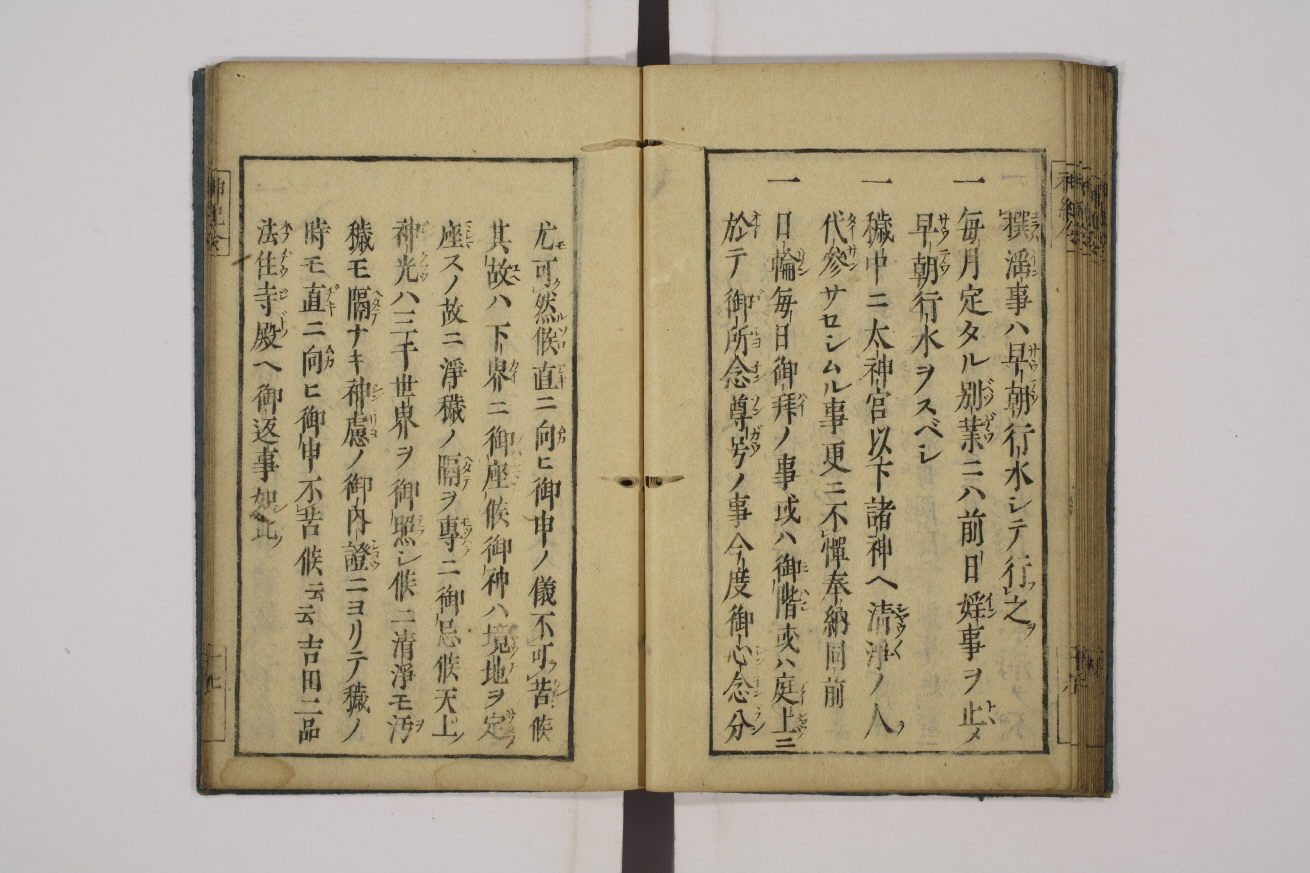 一撰瀉事ハ早朝行水シテ行之
一毎月定タル別業ニハ前日婬事ヲ止メ
早朝行水ヲスベシ
一穢中ニ太神宮以下諸神ヘ清淨ノ人
代參サセシムル事更ニ不憚奉納同前
一日輪毎日御拜ノ事或ハ御階或ハ庭上ニ
於テ御所念尊号ノ事今度御心念分
尤可然候直ニ向ヒ御申ノ儀不可苦候
其故ハ下界ニ御座候御神ハ境地ヲ定
座スノ故ニ淨穢ノ隔ヲ專ニ御忌候天上
神光ハ三千世界ヲ御照シ候ニ清淨モ汚
穢モ隔ナキ神慮ノ御内證ニヨリテ穢ノ
時モ直ニ向ヒ御申不苦候云云吉田二品
法住寺殿ヘ御返事如此